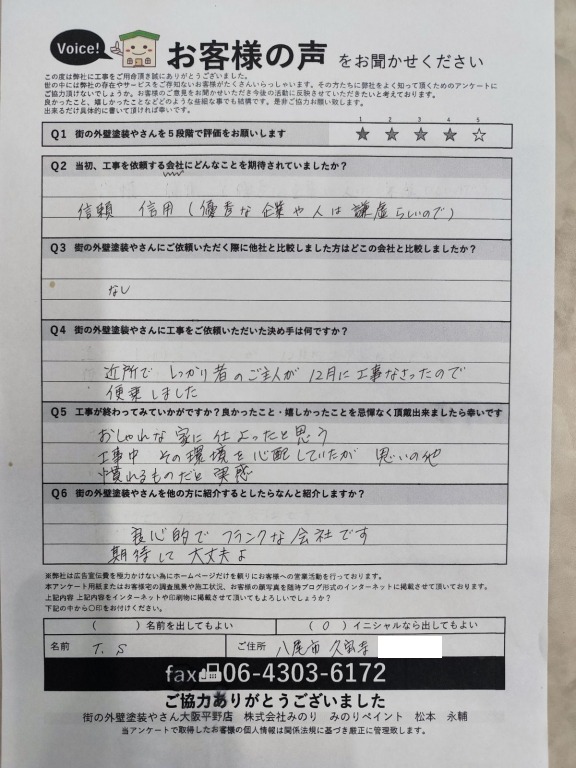 Voice!
お客様の声 をお聞かせください
この度は弊社に工事をご用命頂き誠にありがとうございました。
街の中には弊社の存在やサービスをご存知ないお客様がたくさんいらっしゃいます。その方たちに弊社をよく知って頂くためのアンケートに
ご協力頂けないでしょうか。お客様のご意見をお聞かせいただき今後の活動に反映させていただきたいと考えております。
良かったこと、嬉しかったことなどどのような些細な事でも結構です。是非ご協力お願い致します。
出来るだけ具体的に書いて頂ければ幸いです。
1 2 3 4 5
Q1 街の外壁塗装やさんを5段階で評価をお願いします ★ ★ ★ ★ ☆
Q2 当初、工事を依頼する会社にどんなことを期待されていましたか?
信頼 信用(優秀な企業や人は謙虚らしいので)
Q3 街の外壁塗装やさんにご依頼いただく際に他社と比較しました方はどこの会社と比較しましたか?
なし
Q4 街の外壁塗装やさんに工事をご依頼いただいた決め手は何ですか?
近所で しっかり者のご主人が 12月に工事なさったので
便乗しました
Q5 工事が終わってみていかがですか?良かったこと・嬉しかったことを忌憚なく頂戴出来ましたら幸いです
おしゃれな家に仕上ったと思う
工事中 その環境を心配していたが 思いの他
慣れるものだと実感
Q6 街の外壁塗装やさんを他の方に紹介するとしたらなんと紹介しますか?
良心的で フランクな会社です
期待して 大丈夫よ
※弊社は広告宣伝費を極力かけない為にホームページだけを頼りにお客様への営業活動を行っております。
本アンケート用紙またはお客様宅の調査風景や施工状況、お客様の顔写真を随時ブログ形式のインターネットに掲載させて頂いております。
上記内容 上記内容をインターネットや印刷物に掲載させて頂いてもよろしいでしょうか?
下記の中から〇印をお付けください。
( )名前を出してもよい (O)イニシャルなら出してもよい
名前 T. S ご住所 八尾市 久宝寺
fax 06-4303-6172
ご協力ありがとうございました
街の外壁塗装やさん大阪平野店 株式会社みのり みのりペイント 松本 永輔
当アンケートで取得したお客様の個人情報は関係法規に基づき厳正に管理致します。